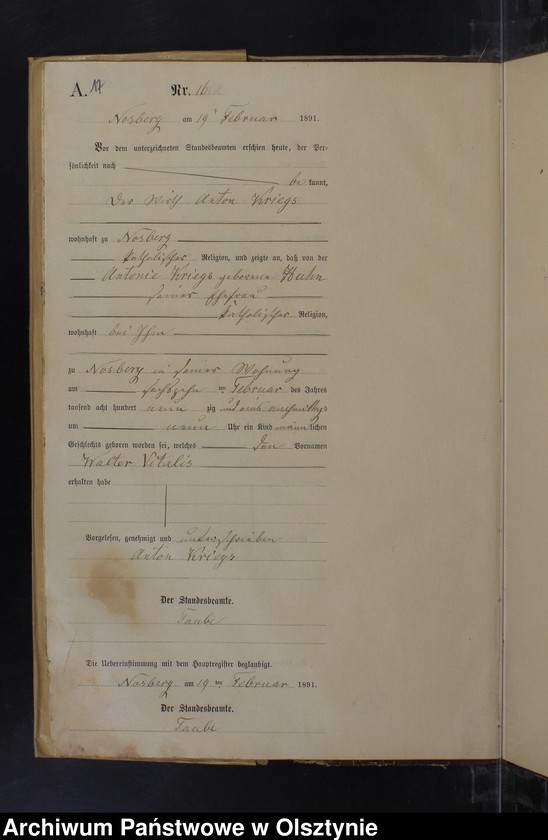 A. 17 Nr. 16
Nosberg am 19t Februar 1891.
Vor dem unterzeichneten Standesbeamten erschien heute, der Per-
sönlichkeit nach
be kannt,
Der Wirth Anton Kriegs
wohnhaft zu Nosberg
katholischer Religion, und zeigte an, daß von der
Antonie Kriegs geborene Huhn
seiner Ehefrau
katholischer Religion,
wohnhaft bei Ihm
zu Nosberg in seiner Wohnung
am sechszehn ten Februar des Jahres
tausend acht hundert neun zig und eins nachmittags
um neun Uhr ein Kind männ lichen
Geschlechts geboren worden sei, welches den Vornamen
Walter Vitalis
erhalten habe
Vorgelesen, genehmigt und unterschrieben
Anton Kriegs
Der Standesbeamte.
Taube
Die Uebereinstimmung mit dem Hauptregister beglaubigt.
Nosberg am 19 ten Februar 1891.
Der Standesbeamte.
Taube
Archiwum Państwowe w Olsztynie